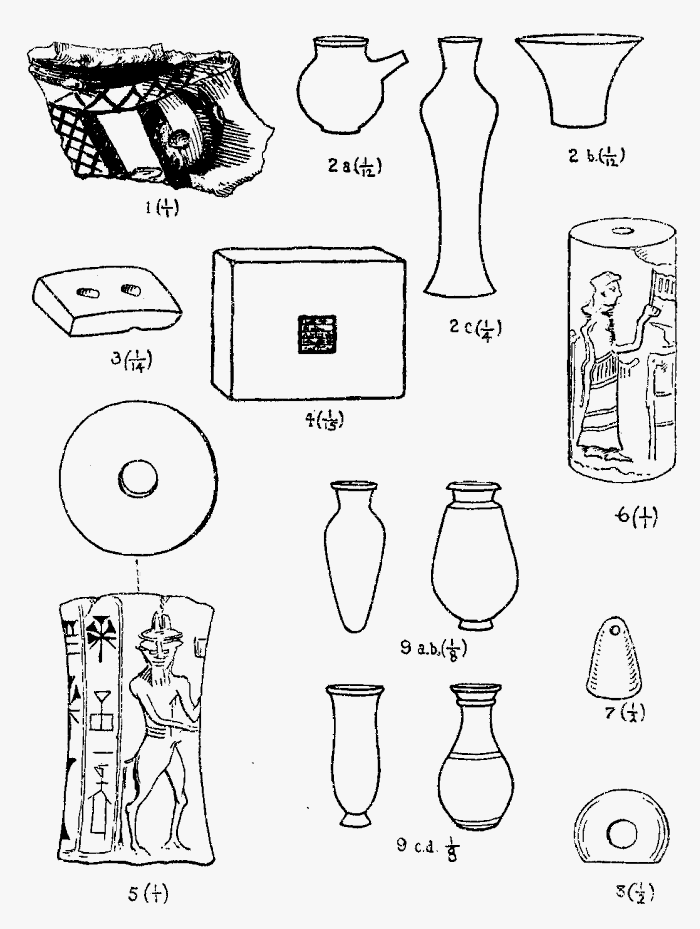 2 a (1/12)
2 b. (1/12)
1 (1/1)
2 c (1/4)
3 (1/14)
4 (1/15)
6 (1/1)
9 a.b. (1/8)
7 (1/2)
9 c.d. 1/8
5 (1/1)
8 (1/2)